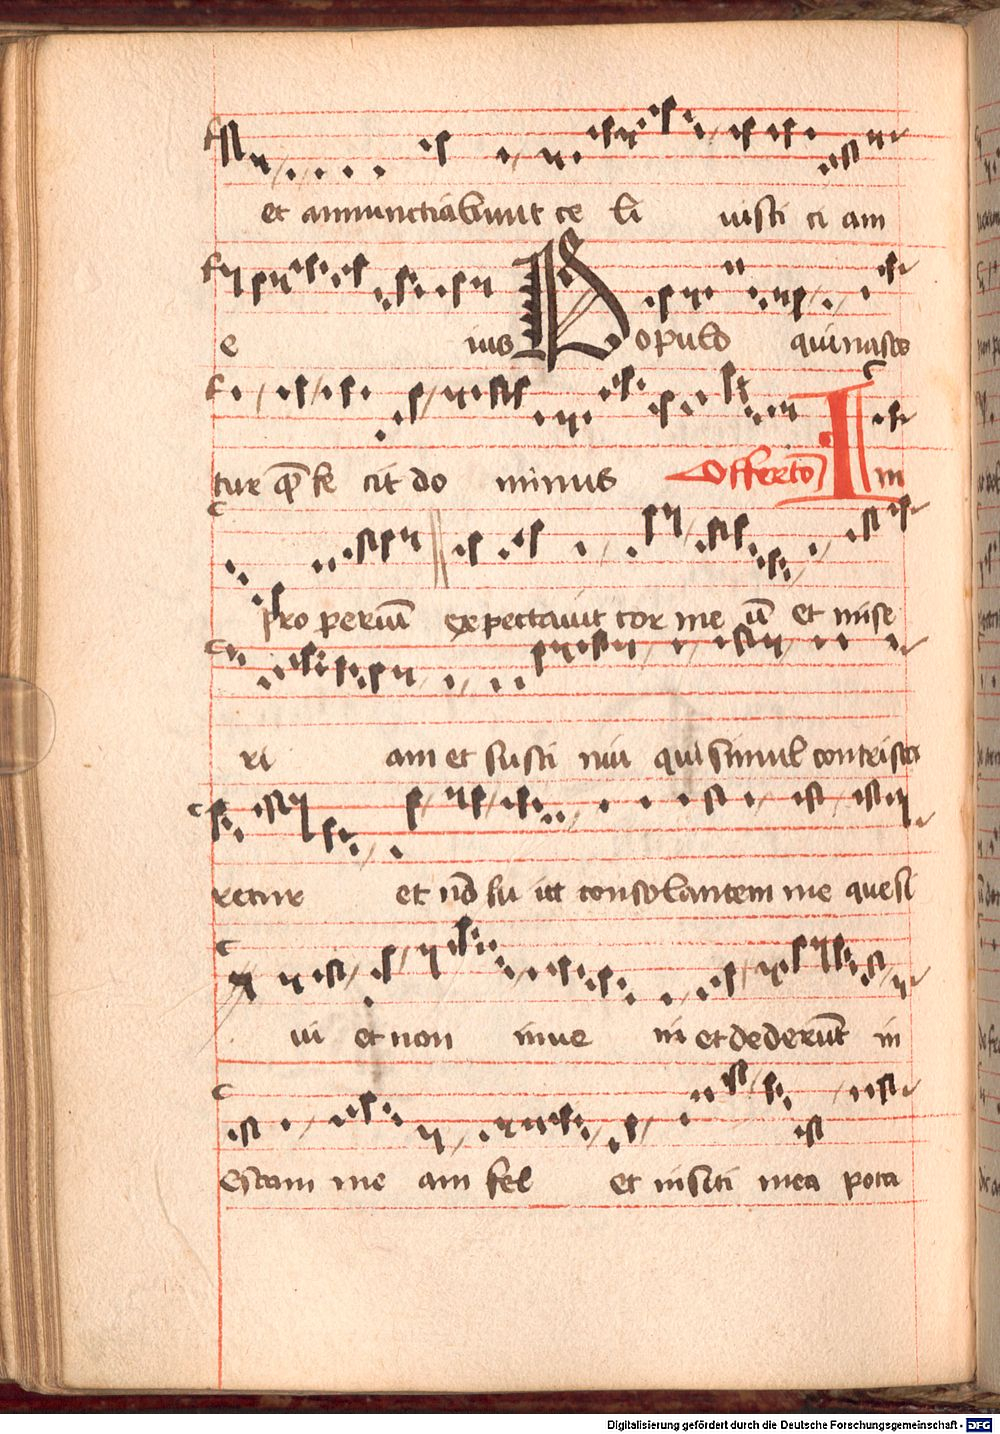 et annunctiabunt ce li iusti ci am
e ius Populo qui nasce
tur q̄ fe cit do minus Offertō In
pro periū expectauit cor me ū et mise
ri am et susti nui qui simul contrista
retur et nō fu it consolantem me quesi
ui et non inue ni et dederūt in
escam me am fel et in siti mea pota
Digitalisierung gefördert durch die Deutsche Forschungsgemeinschaft - DFG